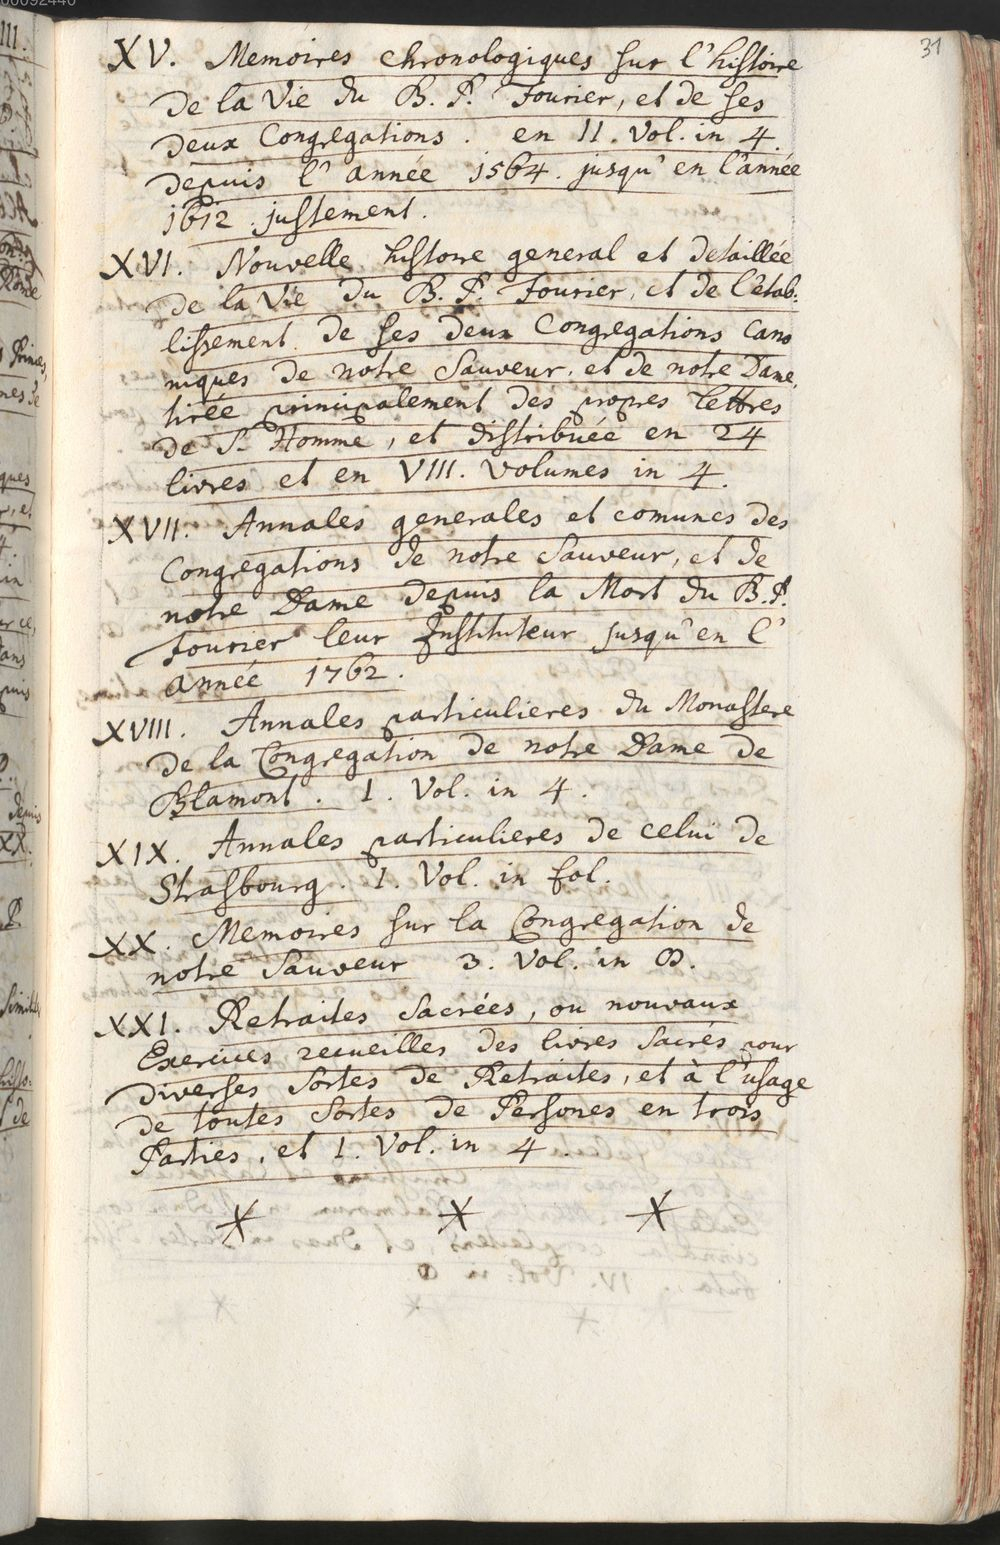 31
XV. Memoires chronologiques sur l'histoire
de la Vie du B. P. Fourier, et de ses
deux Congregations. en II. Vol. in 4.
depuis l'année 1564. jusqu'en l'année
1612. justement.
XVI. Nouvelle histoire general et detaillée
de la Vie du B. P. Fourier, et de l'etab:
lissement de ses deux Congregations Cano
niques de notre Sauveur, et de notre Dame,
tirée principalement des propres lettres
de S. Homme, et distribuée en 24
livres et en VIII. volumes in 4.
XVII. Annales generales et comunes des
Congregations de notre Sauveur, et de
notre Dame depuis la Mort du B. P.
Fourier leur Instituteur jusqu'en l'
année 1762.
XVIII. Annales particulieres du Monastere
de la Congregation de notre Dame de
Blamont. 1. Vol. in 4.
XIX. Annales particulieres de celui de
Strasbourg. 1. Vol. in fol.
XX. Memoires sur la Congregation de
notre Sauveur 3. Vol. in
XXI. Retraites Sacrées, ou nouvaux
Exercices recueilles des livres Sacrés pour
diverses Sortes de Retraites, et à l'usage
de toutes Sortes de Persones en trois
Parties, et 1. Vol. in 4.